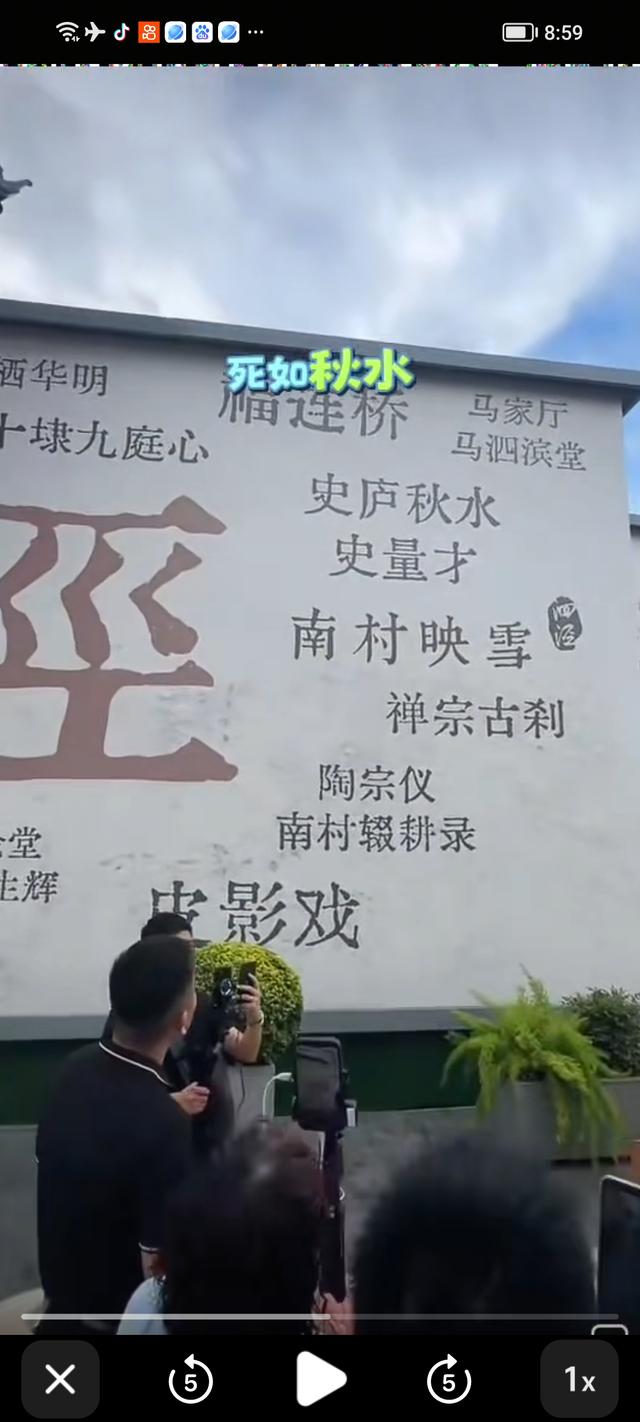 8:59
死如秋水
栖华明
福连桥
马家厅
十埭九庭心
马泗滨堂
史庐秋水
史量才
泾
南村映雪
泗泾
禅宗古刹
陶宗仪
南村辍耕录
堂
生辉
皮影戏
5
5
1x